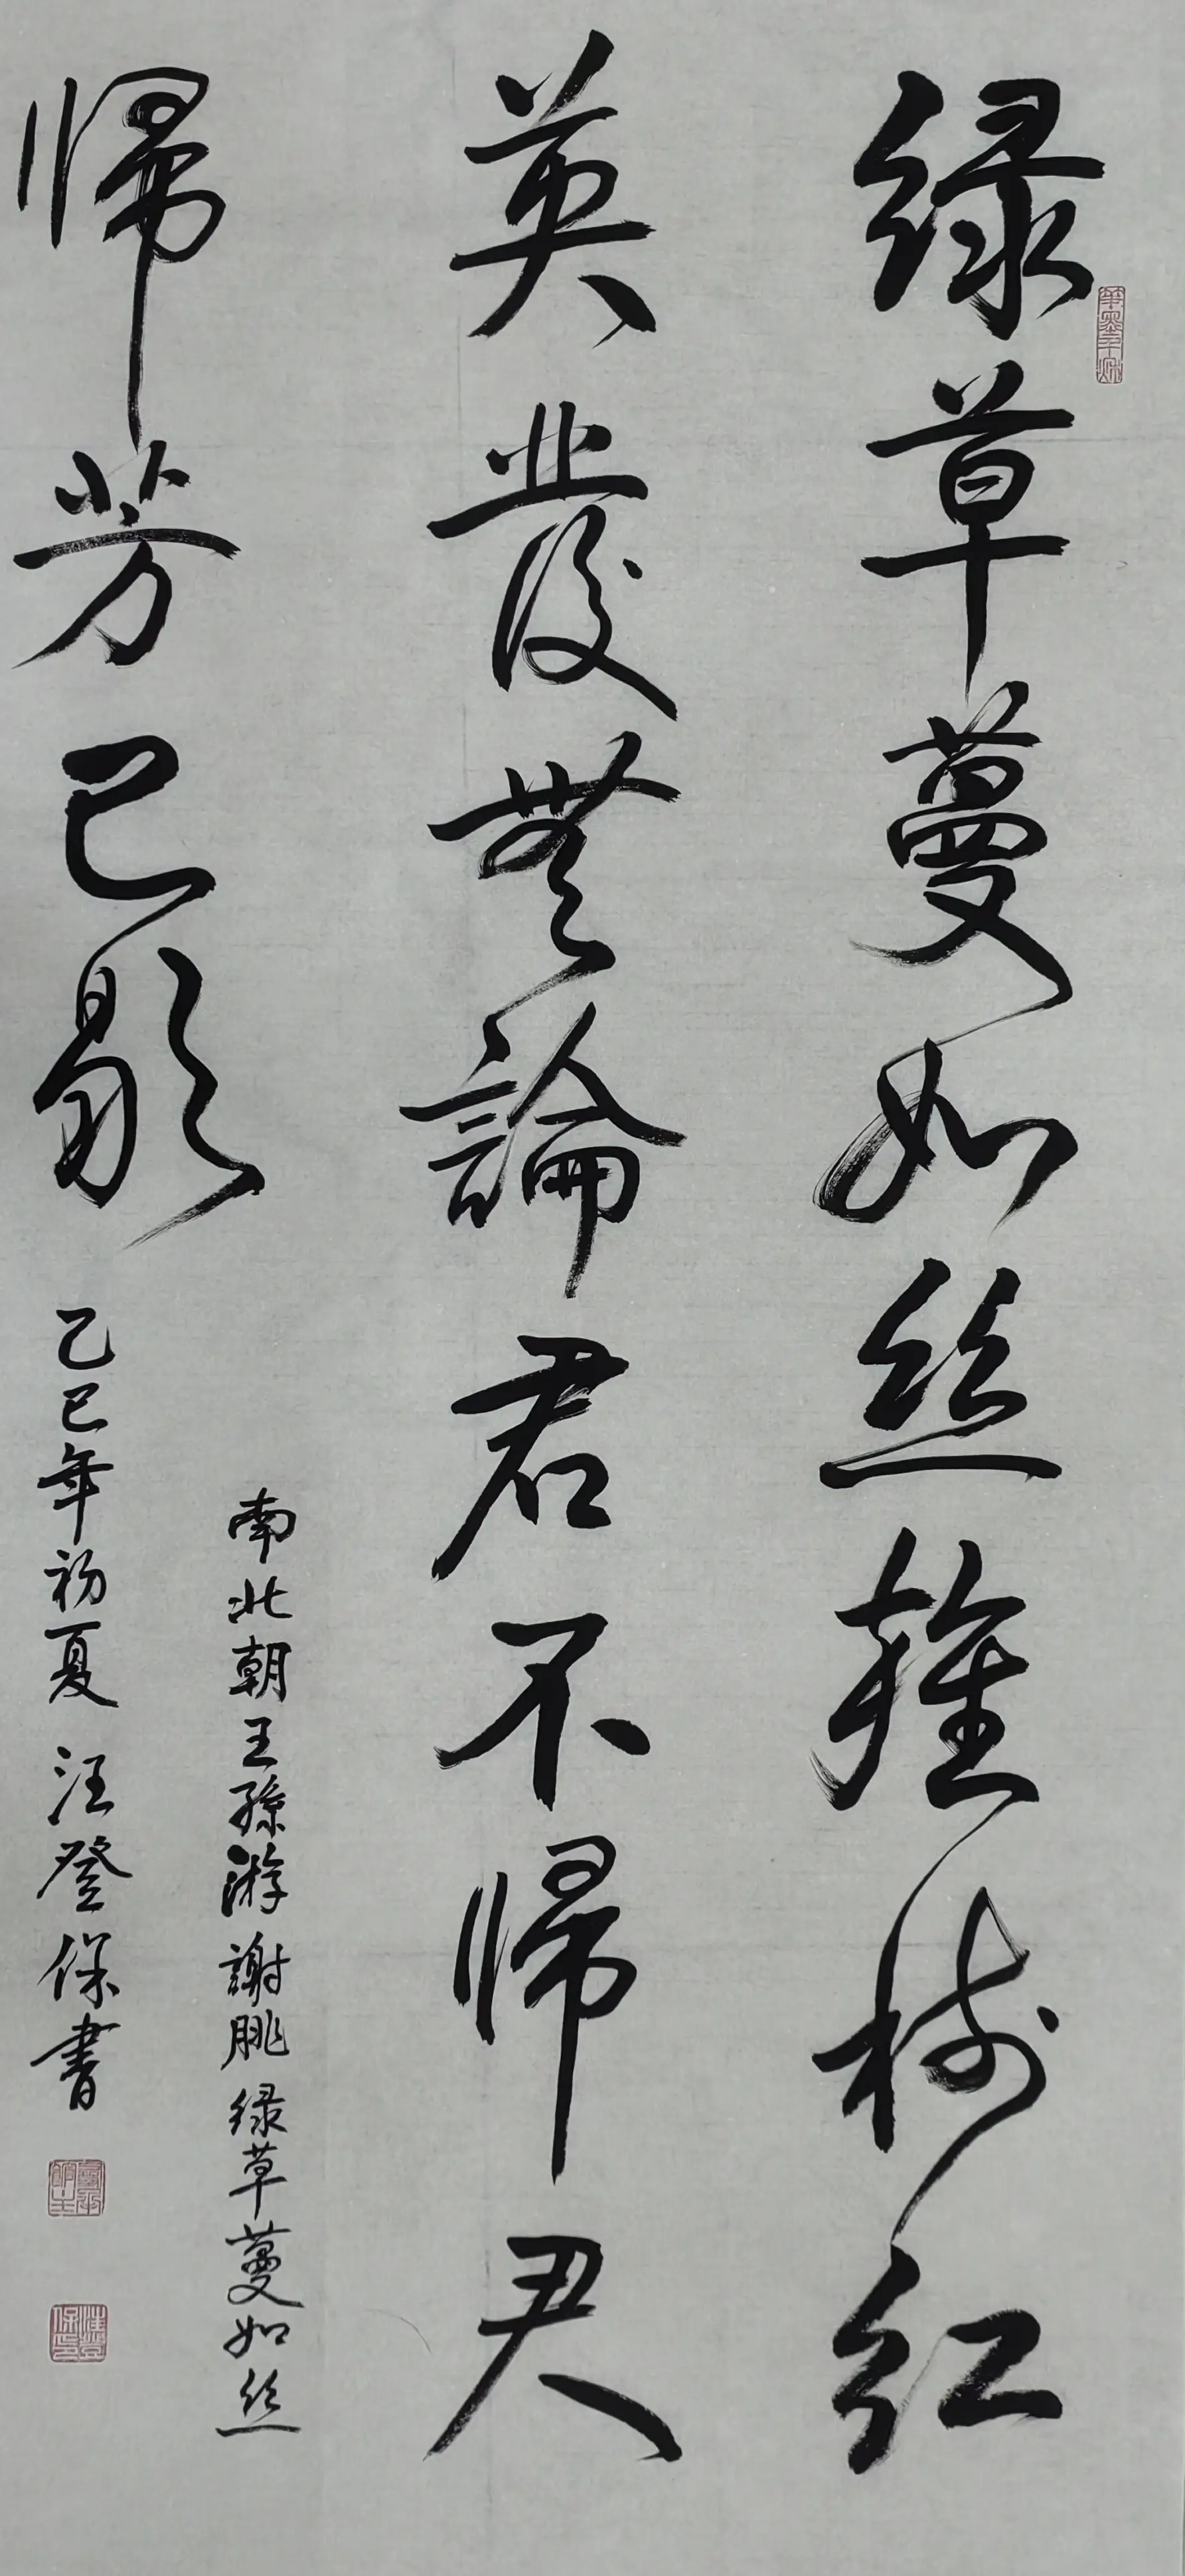 绿草蔓如丝雜树红
英發無論君不歸君
歸芳已歇
南北朝王孫游謝朓绿草蔓如丝
乙巳年初夏汪登保書